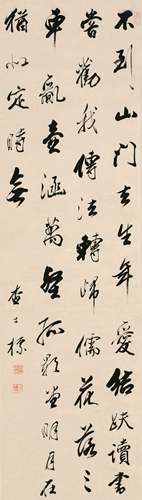 不到山門去生年愛結趺讀書
嘗勸我傳法轉歸儒花落三
車亂壺涵萬壑孤影明月在
猶似定時無
查士標